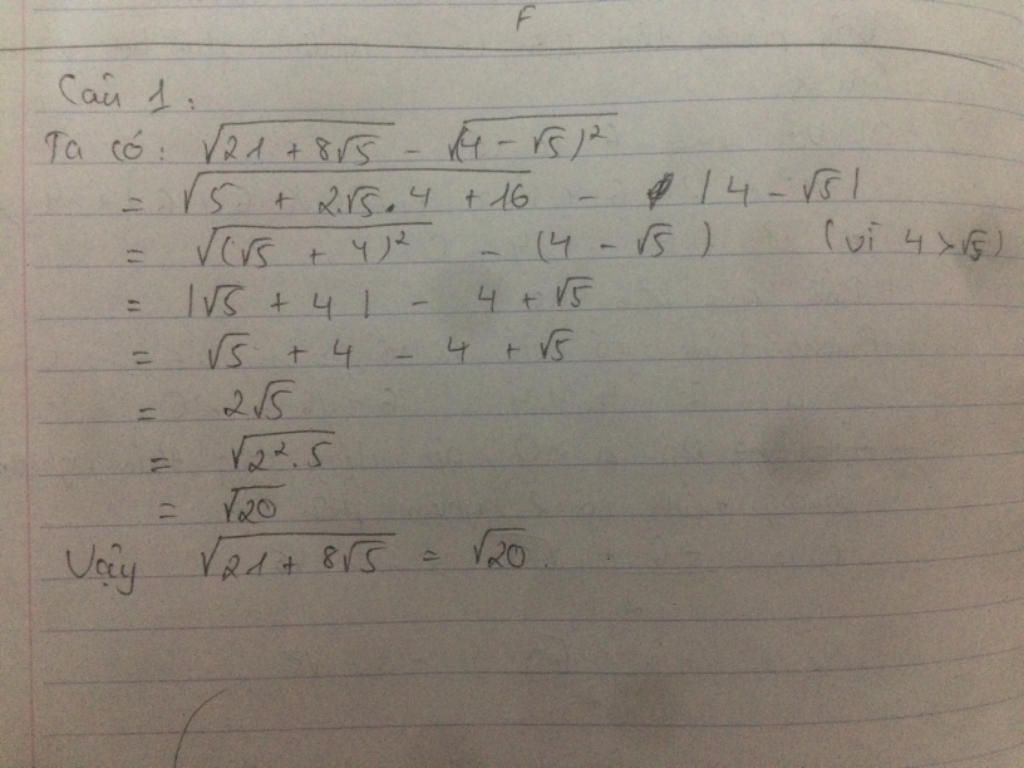 F
Câu 1:
Ta có: √(21 + 8√5) - √((4 - √5)²)
= √(5 + 2.√5.4 + 16) - |4 - √5|
= √((√5 + 4)²) - (4 - √5) (vì 4 > √5)
= |√5 + 4| - 4 + √5
= √5 + 4 - 4 + √5
= 2√5
= √(2².5)
= √20
Vậy √(21 + 8√5) = √20.